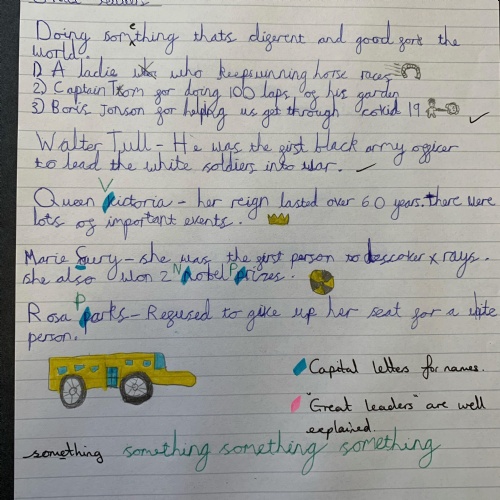 Doing something thats digerent and good gor the
world.
1) A ladie who keeps winning horse races
2) Captain Tom gor doing 100 laps og his garden
3) Boris Jonson gor helping us get through cokid 19
Walter Tull - He was the girst black army ogger
to lead the white soldiers into war.
V
Queen kictoria - her reign lasted over 60 years. there were
lots og important events.
Marie Cury - she was the girst person to descoker x rays.
N P
she also won 2 nobel prizes.
P
Rosa parks - Regused to give up her seat for a white
person.
Capital letters for names.
"Great leaders" are well
explained.
something something something something